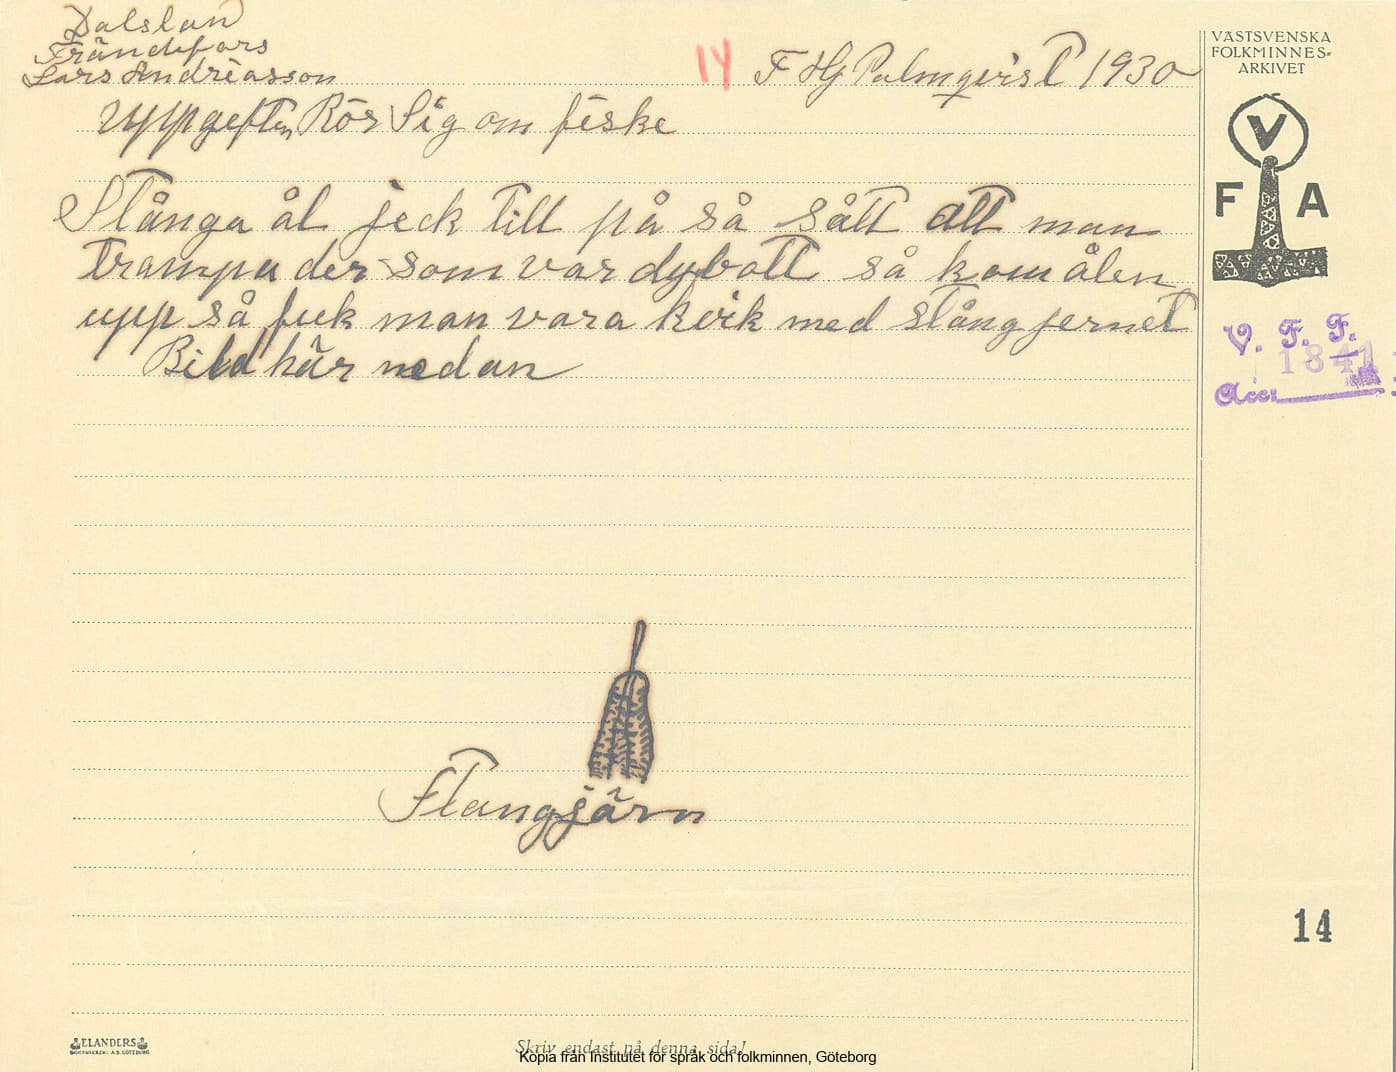 Dalslan
Frändefors
Lars Andréasson
14
F Hj Palmqvist 1930
VÄSTSVENSKA
FOLKMINNES-
ARKIVET
V
F A
uppgeften Rör Sig om fiske
Stånga ål jeck till på så sått att man
trampa der som var dybott så kom ålen
upp så fick man vara kvik med stångjernet
Bild här nedan
V. F. F.
1841
Acc:
Stangjärn
14
ELANDERS
BOKTRYCKERI A.B. GÖTEBORG
Skriv endast på denna sida!
Kopia från Institutet för språk och folkminnen, Göteborg